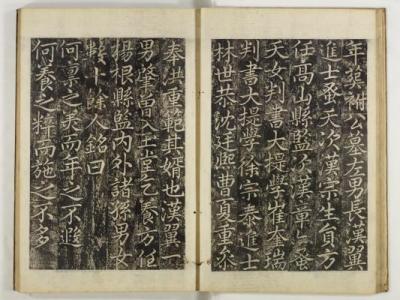 年葬祔公墓左男長漢翼
進士蚤夭次漢宗生員方
任高山縣監次漢章亦蚤
夭女判書大提學崔奎瑞
判書大提學徐宗泰進士
林世恭沈廷熙曹夏重
奉洪重範其婿也漢翼一
男肇曾入主堂乙養方任
楊根縣監內外諸孫男女
數十餘人銘曰
何稟之美而年之不遐
何養之粹而施之不多